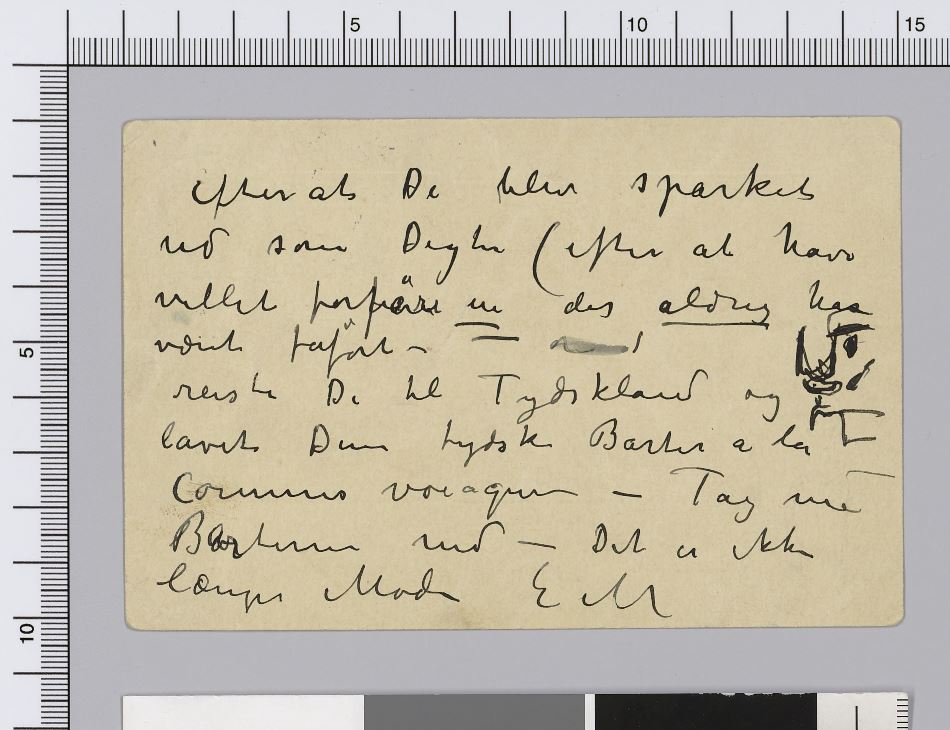 5 10 15
5
10
efter at De blev sparket
ud som Digter (efter at have
villet en des aldrig har
været
reiste De til Tydskland og
lavet Dem tydske Barter a la
Commis voiagur — Tag nu
Barterne med — Det er ikke
længer Mode E M